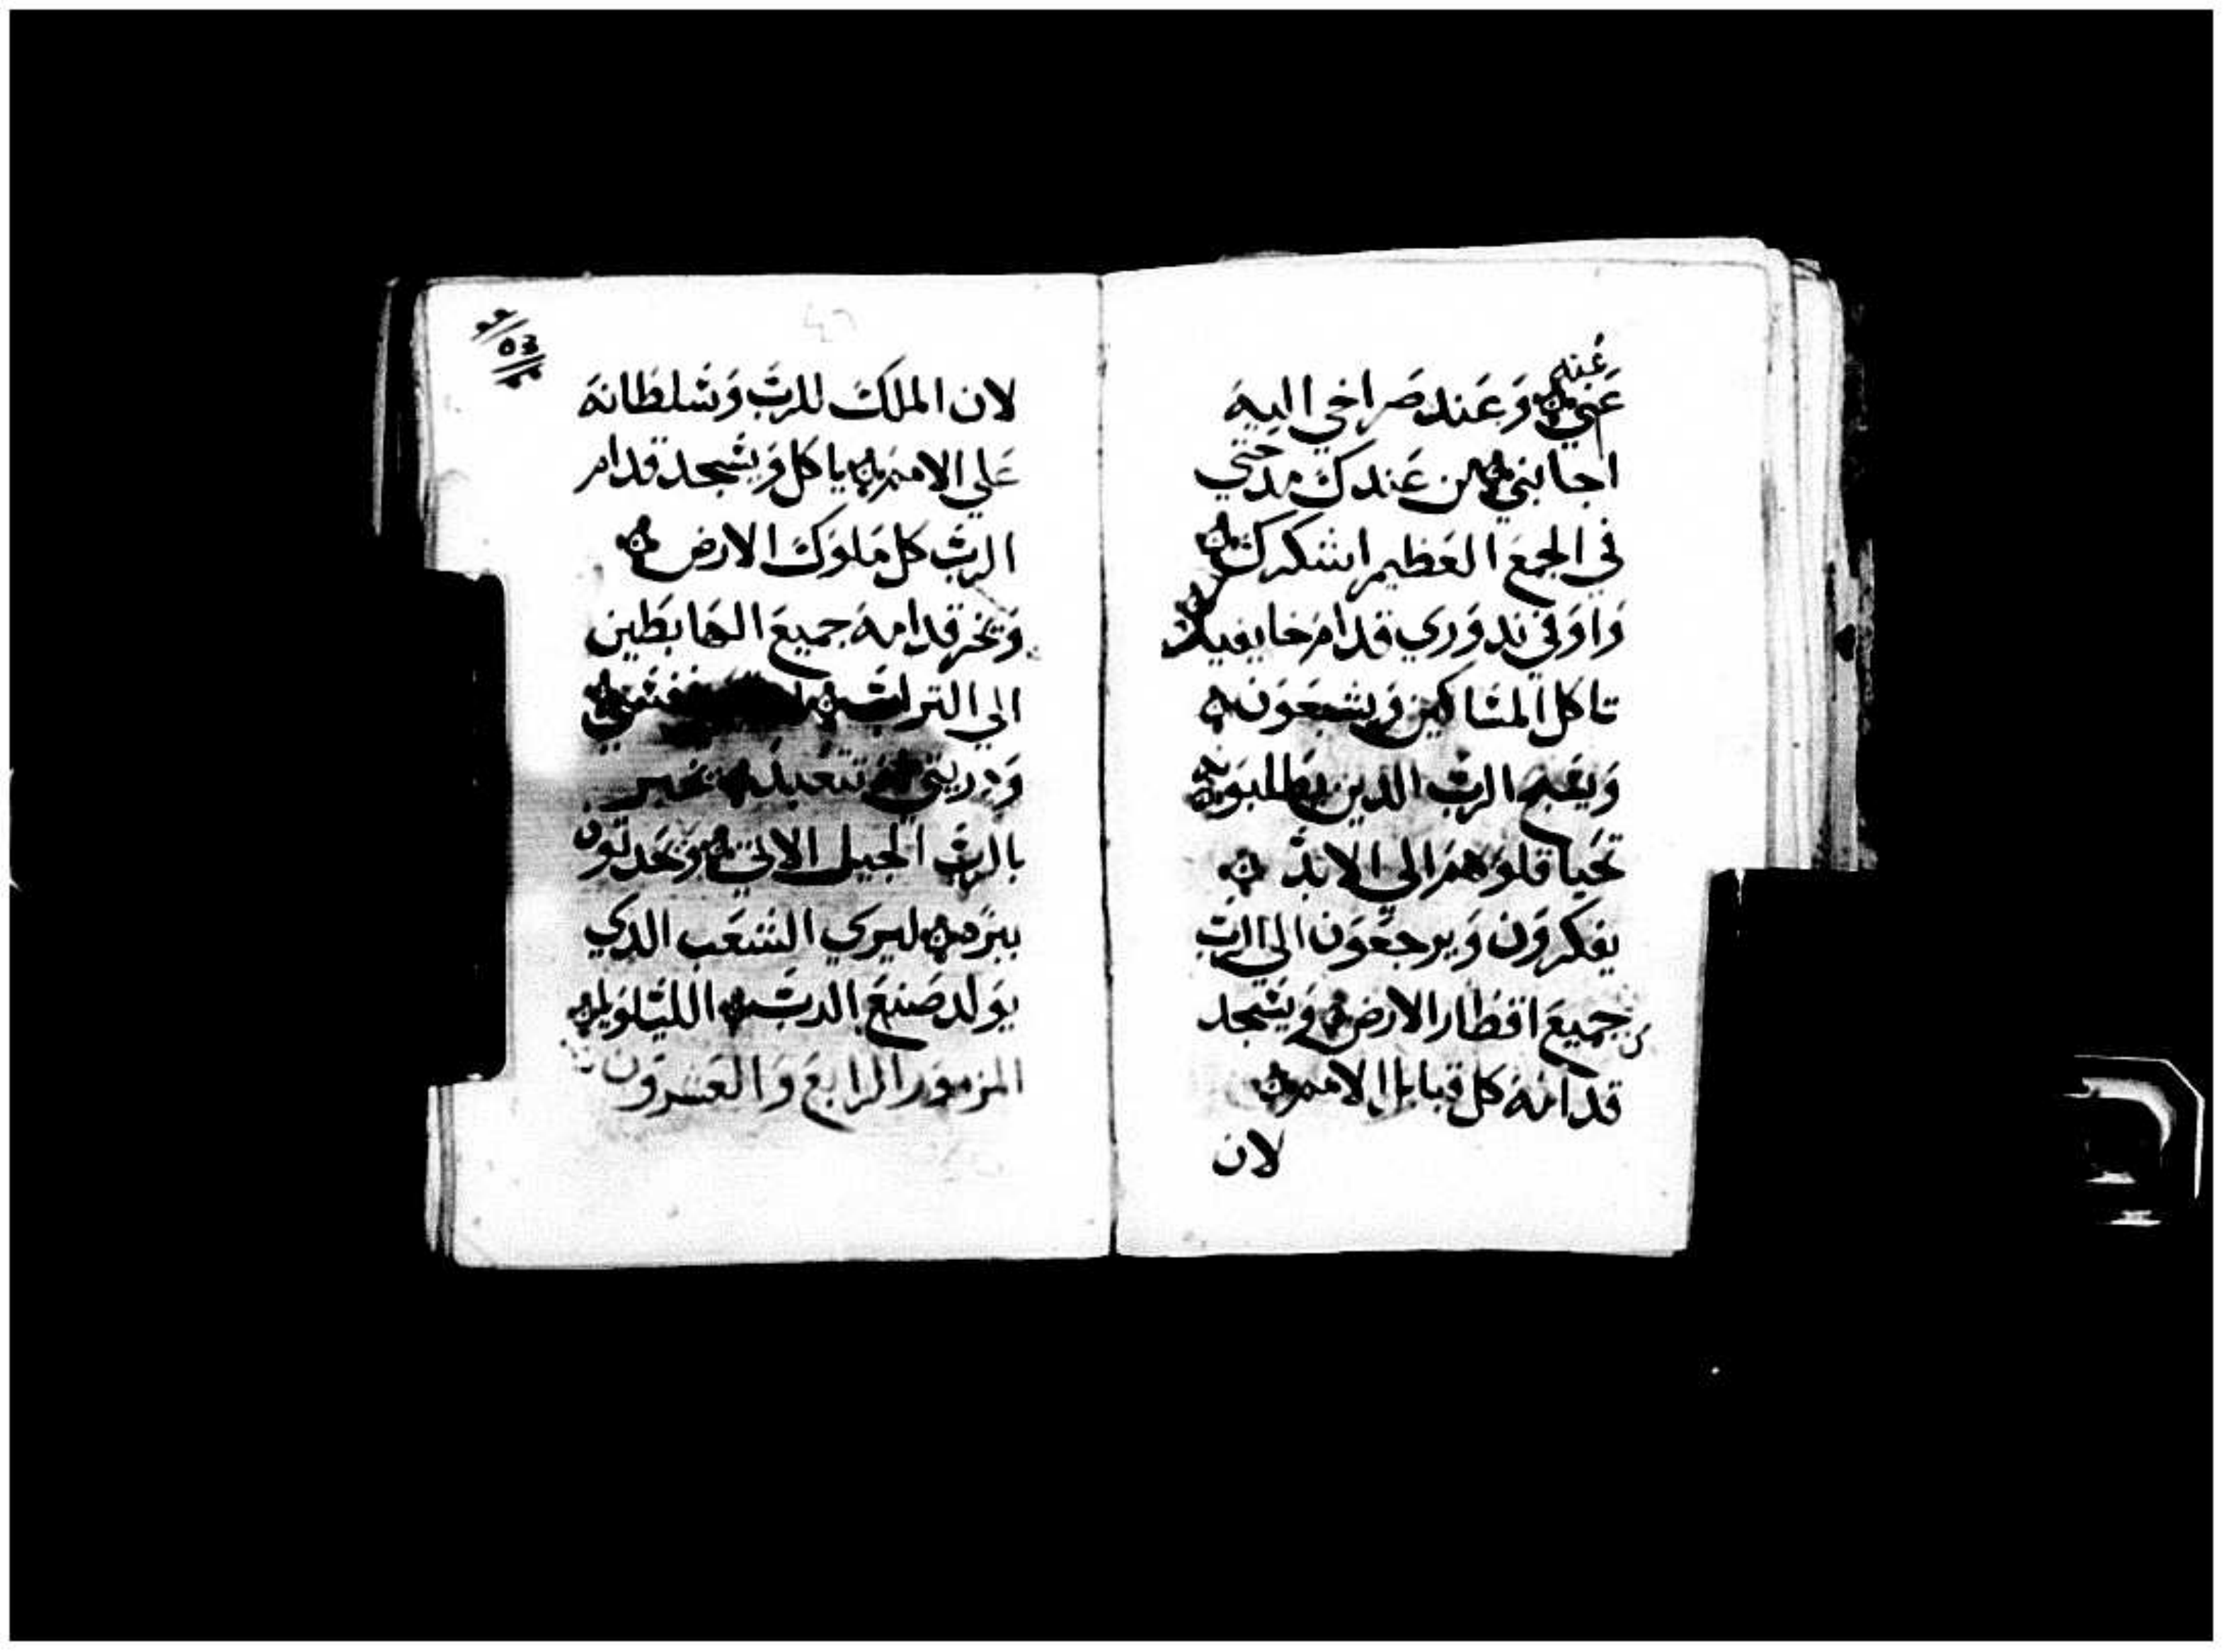 عنه
عني وعند صراخي اليه
اجابني من عندك مدحتي
في الجمع العظيم اشكرك
واوفي ندوري قدام خايفيك
تاكل المساكين ويشبعون
ويسبح الرب الدين يطلبونه
تحيا قلوبهم الي الابد
يفكرون ويرجعون الي الرب
جميع اقطار الارض ويسجد
قدامه كل قبايل الامم
لان
٥٣
لان الملك للرب وسلطانه
علي الامم ياكل ويسجد قدام
الرب كل ملوك الارض
وتخر قدامه جميع الهابطين
الي التراب
ودريتي تتعبد له تخبر
بالرب الجيل الاتي ويحدتون
ببره ليري الشعب الدي
يولد صنع الرب الليلويا
المزمور الرابع والعشرون